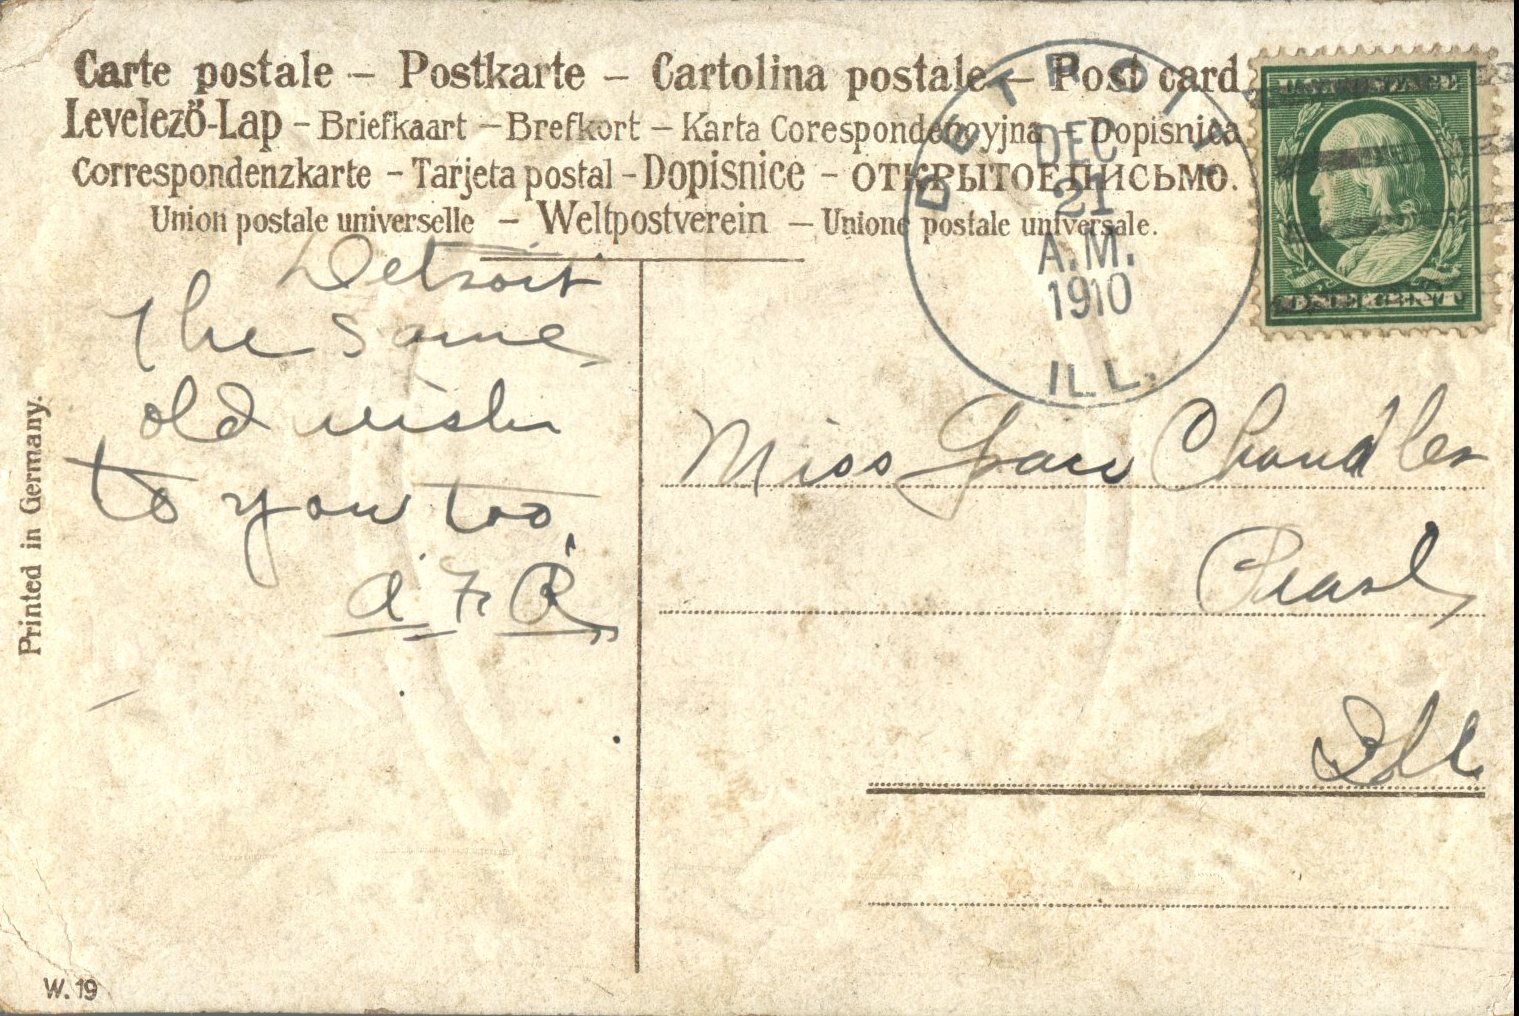 Carte postale – Postkarte – Cartolina postale – Post card
Levelező-Lap – Briefkaart – Brefkort – Karta Corespondencyjna – Dopisnica
Correspondenzkarte – Tarjeta postal – Dopisnice – ОТКРЫТОЕ ПИСЬМО.
Union postale universelle – Weltpostverein – Unione postale universale.
DETROIT
DEC
21
A.M.
1910
ILL.
U.S. POSTAGE
ONE CENT
Detroit
The same
old wishes
to you too.
A. F. R.
Miss Grace Chandler
Pearl
Ill
Printed in Germany.
W. 19